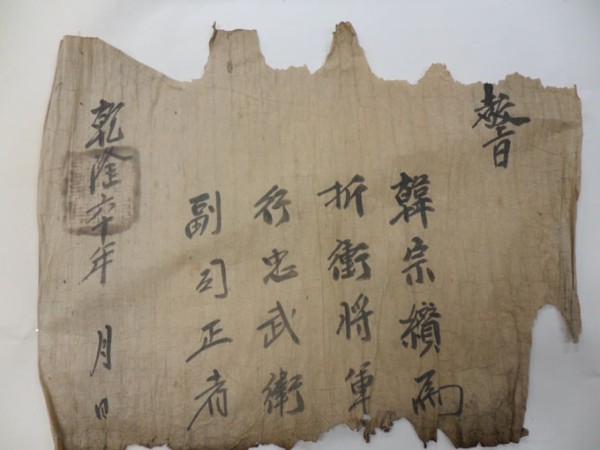 敎旨
韓宗繽爲
折衝將軍
行忠武衛
副司正者
乾隆六十年 月 日